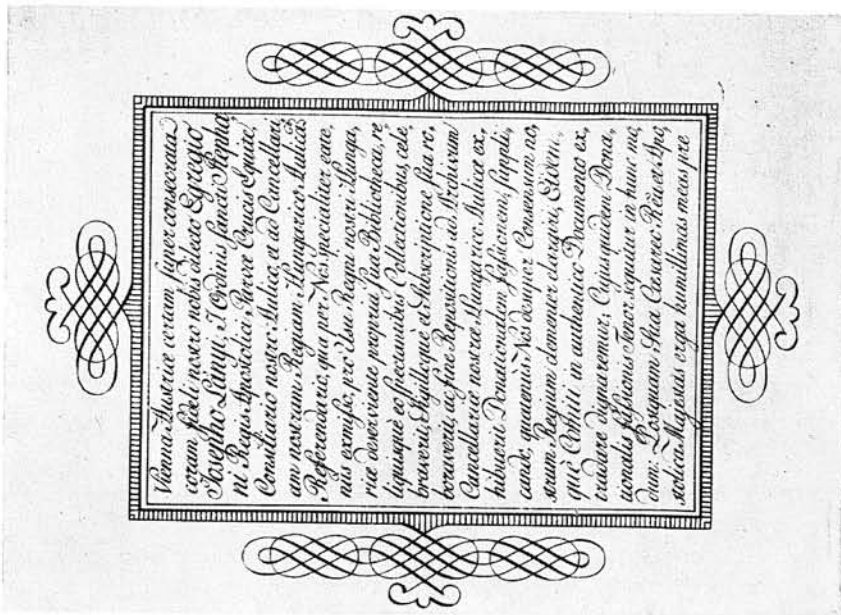 Viennæ Austriæ coram,
coram fideli nostro nobis dilecto Egregio
Josepho Lányi, I. Ordinis Sancti Stepha,
ni Regis Apostolici Parvæ Crucis Equite,
Consiliario nostro Aulico, et ad Cancellari,
am nostram Regiam Hungarico-Aulicam
Referendario, qua per Nos specialiter eate,
nus exmisso, pro Usu Regni nostri Hunga,
riæ deserviente propriæ suæ Bibliothecæ, re,
liquisquè eo spectantibus Collectionibus, cele,
braverit, Sigilloquè et Subscriptione sua ro,
boraverit, ac fine Repositionis ad Archivum
Cancellariæ nostræ Hungarico Aulicæ ex,
hibuerit Donationalem Fassionem, suppli,
cando, quatenùs Nos desuper Consensum no,
strum Regium clementer elargiri, Eidem,
què Comiti in authentico Documento ex,
tradare dignaremur; Cujusquidem Dona,
tionalis Fassionis Tenor sequitur in hunc mo,
dum: Postquam Sua Cæsareo-Regia et Apo,
stolica Majestas erga humillimas meas pre